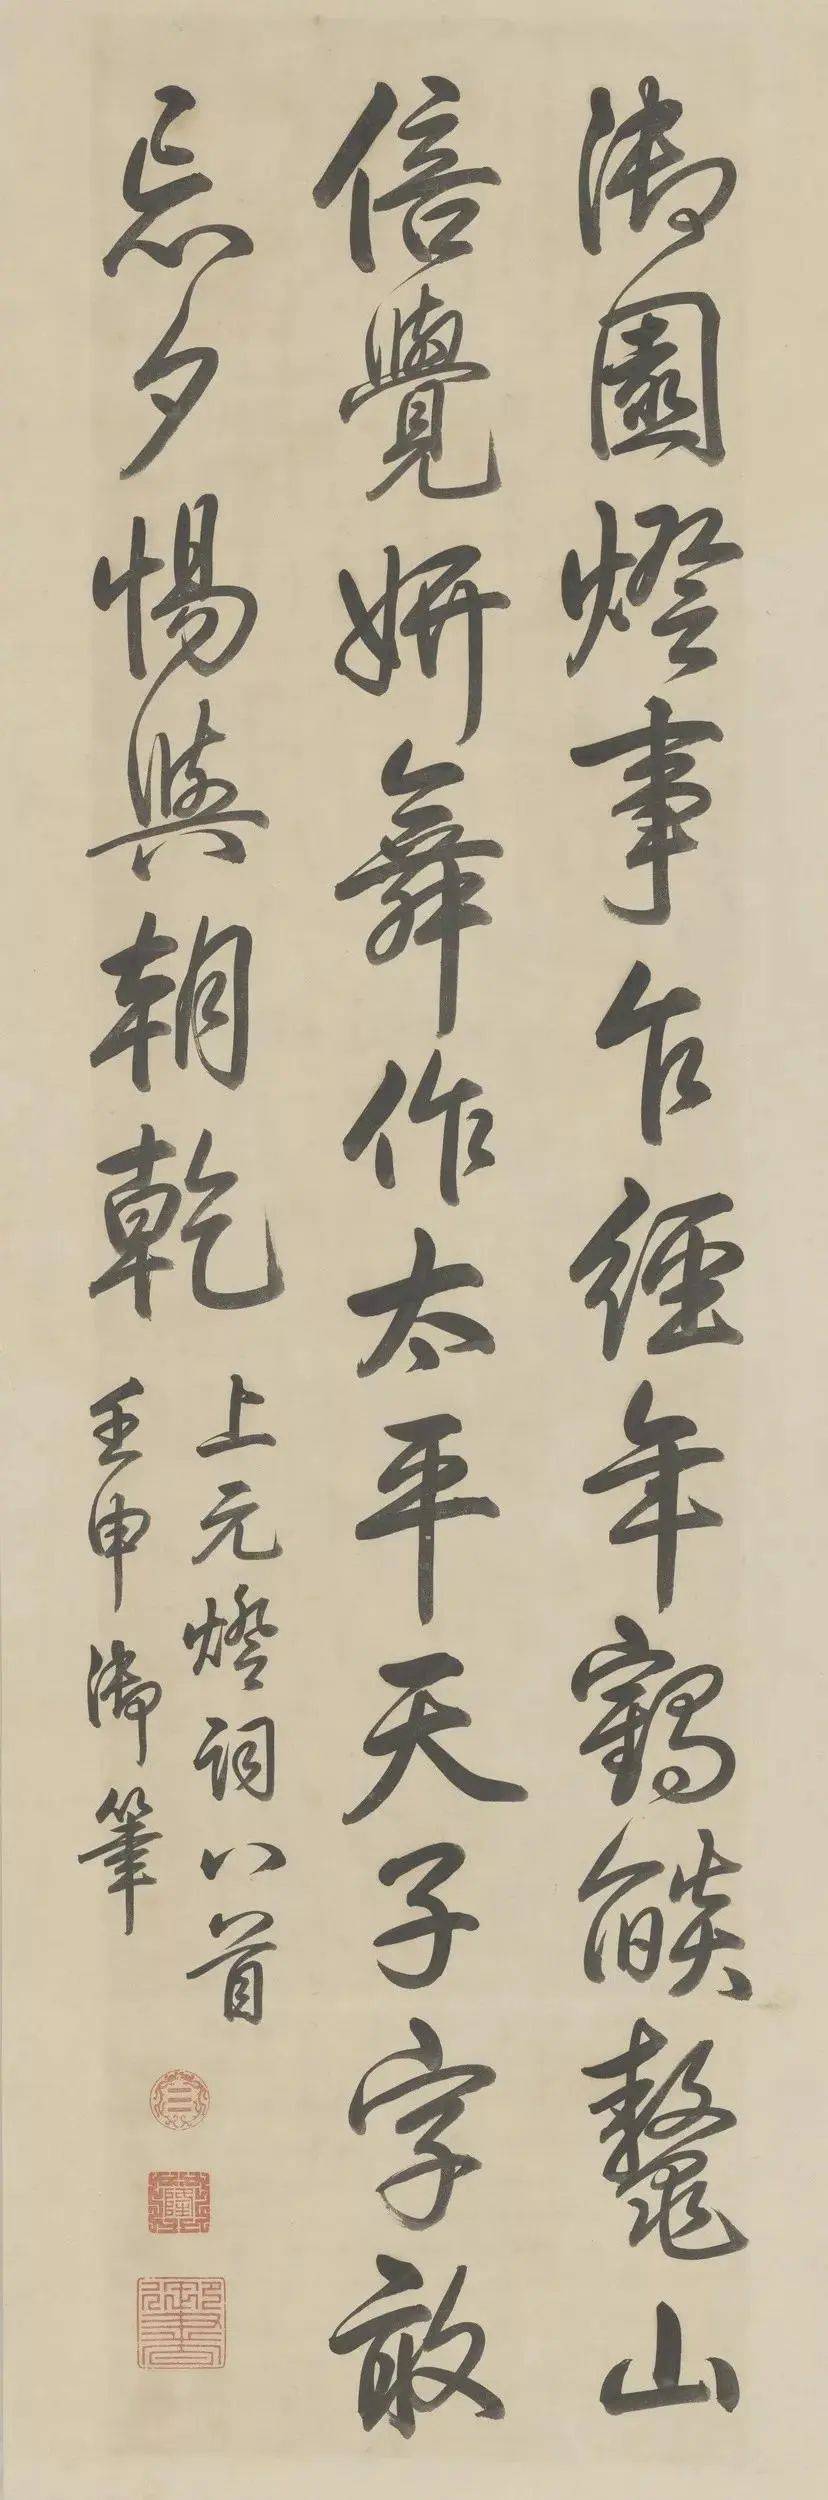 御園燈事乍經年鶴燄鼇山
倍覺妍舞作太平天子字敢
忘夕惕與朝乾
上元燈詞八首
壬申御筆
三
隆
御書